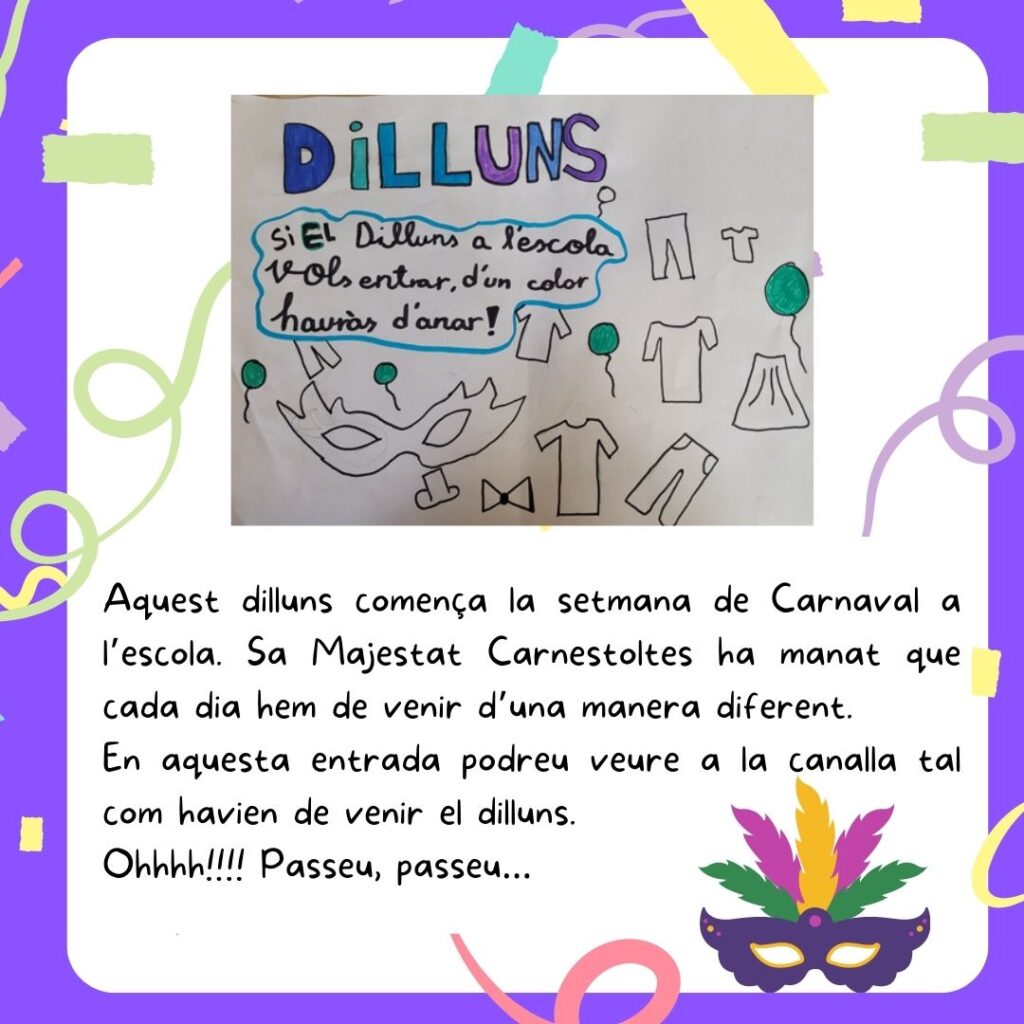 DiLLUNS
Si EL Dilluns a l'escola
vols entrar, d'un color
hauràs d'anar!
Aquest dilluns comença la setmana de Carnaval a
l'escola. Sa Majestat Carnestoltes ha manat que
cada dia hem de venir d'una manera diferent.
En aquesta entrada podreu veure a la canalla tal
com havien de venir el dilluns.
Ohhhh!!!! Passeu, passeu...